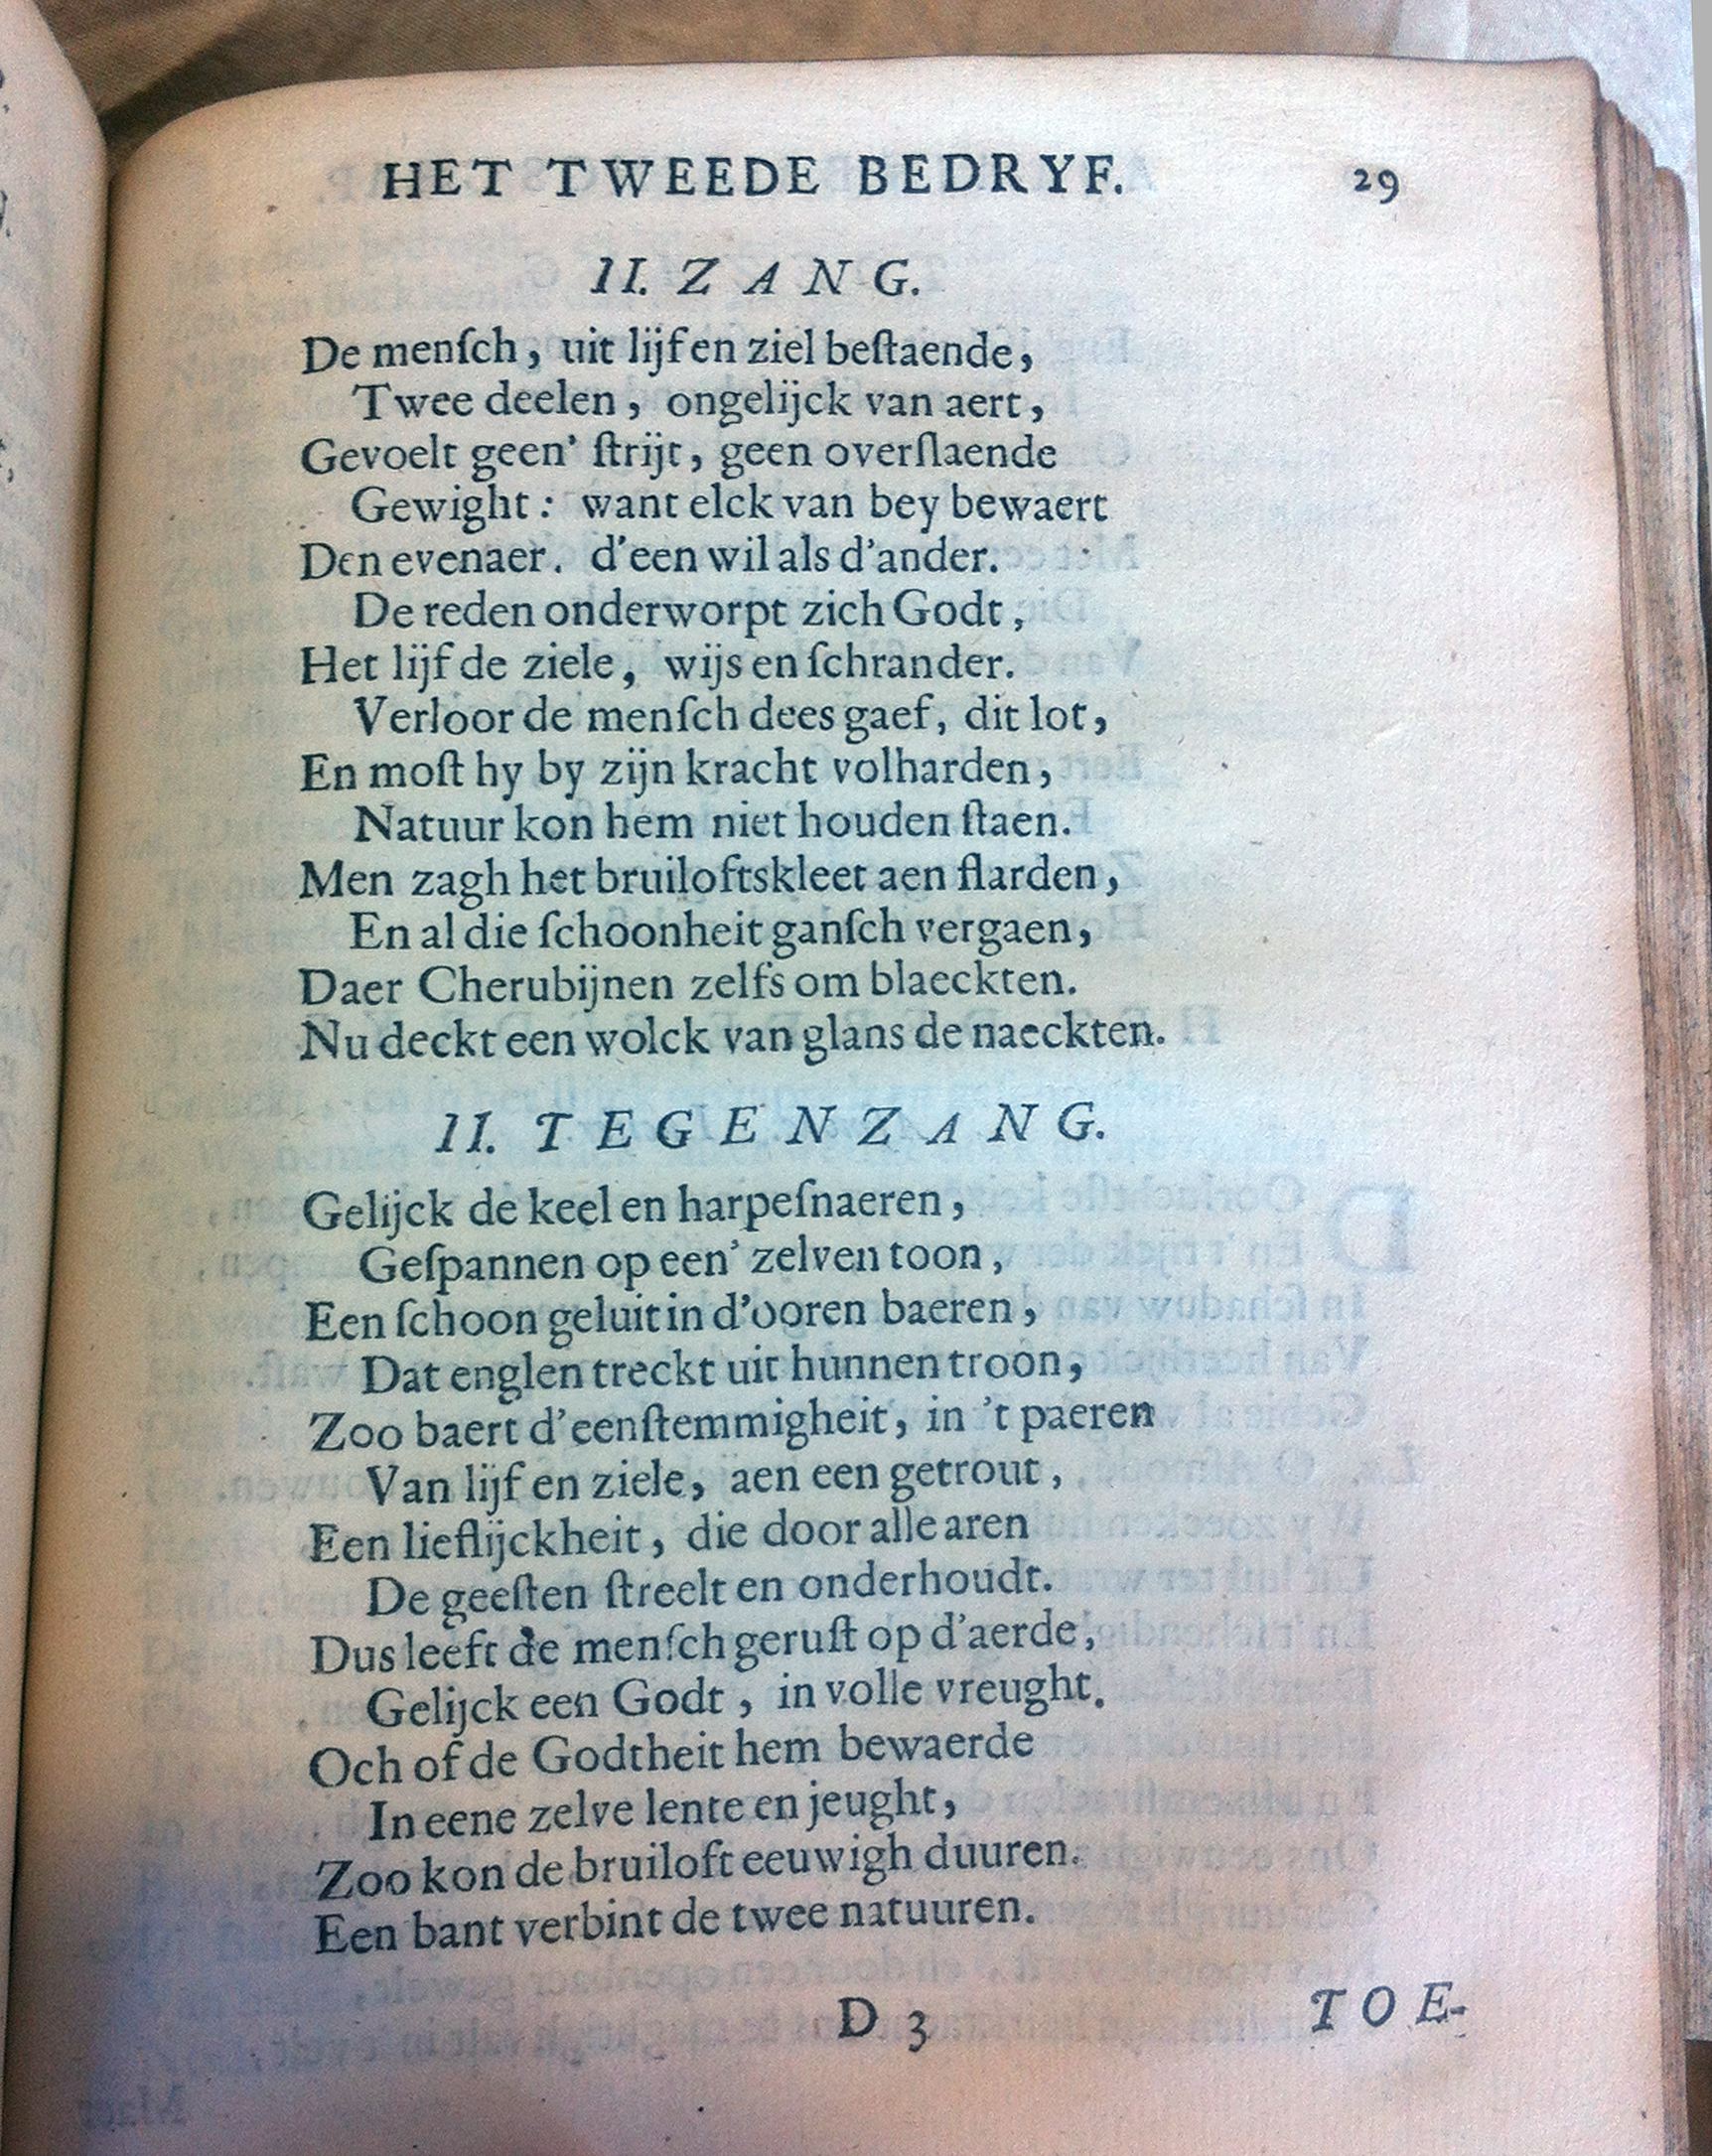 HET TWEEDE BEDRYF. 29
II. ZANG.
De menſch, uit lijf en ziel beſtaende,
Twee deelen, ongelijck van aert,
Gevoelt geen' ſtrijt, geen overſlaende
Gewight: want elck van bey bewaert
Den evenaer. d'een wil als d'ander.
De reden onderworpt zich Godt,
Het lijf de ziele, wijs en ſchrander.
Verloor de menſch dees gaef, dit lot,
En moſt hy by zijn kracht volharden,
Natuur kon hem niet houden ſtaen.
Men zagh het bruiloftskleet aen flarden,
En al die ſchoonheit ganſch vergaen,
Daer Cherubijnen zelfs om blaeckten.
Nu deckt een wolck van glans de naeckten.
II. TEGENZANG.
Gelijck de keel en harpeſnaeren,
Geſpannen op een' zelven toon,
Een ſchoon geluit in d'ooren baeren,
Dat englen treckt uit hunnen troon,
Zoo baert d'eenſtemmigheit, in 't paeren
Van lijf en ziele, aen een getrout,
Een lieflijckheit, die door alle aren
De geeſten ſtreelt en onderhoudt.
Dus leeft de menſch geruſt op d'aerde,
Gelijck een Godt, in volle vreught.
Och of de Godtheit hem bewaerde
In eene zelve lente en jeught,
Zoo kon de bruiloft eeuwigh duuren.
Een bant verbint de twee natuuren.
D 3 TOE-